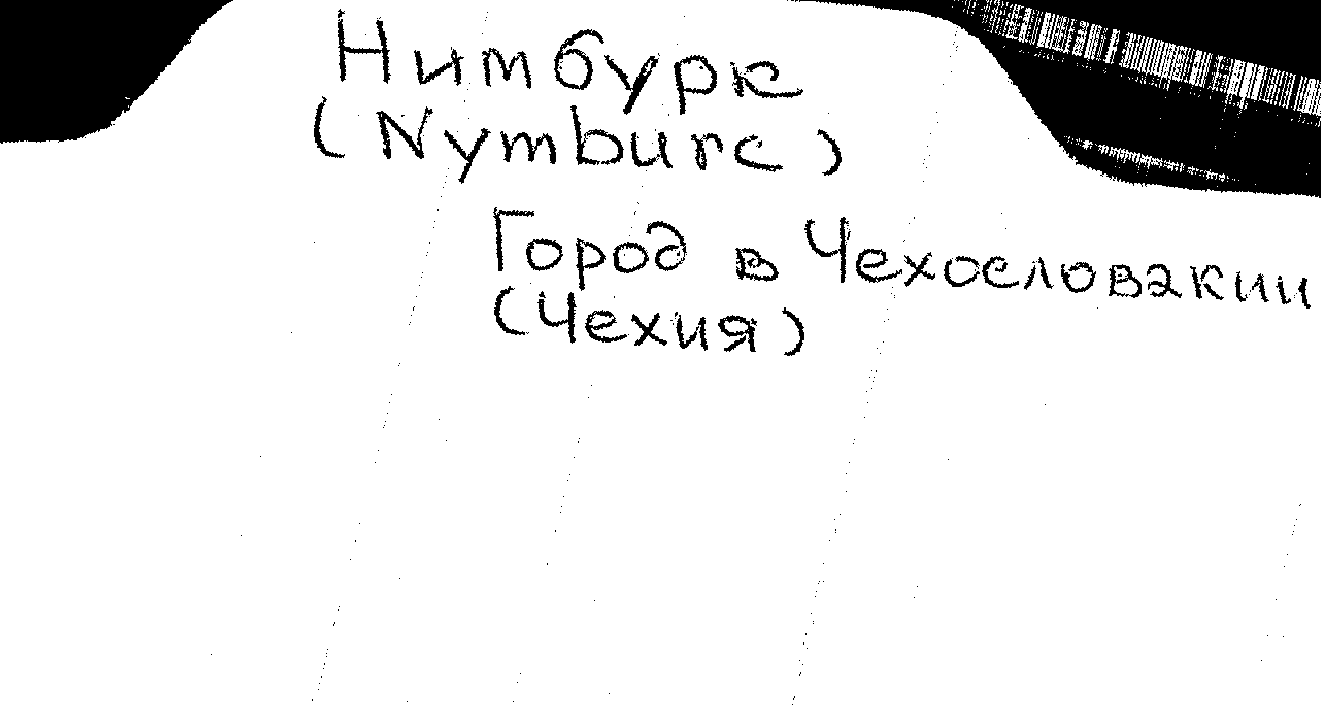 Нимбурк
(Nymburc)
Город в Чехословакии
(Чехия)